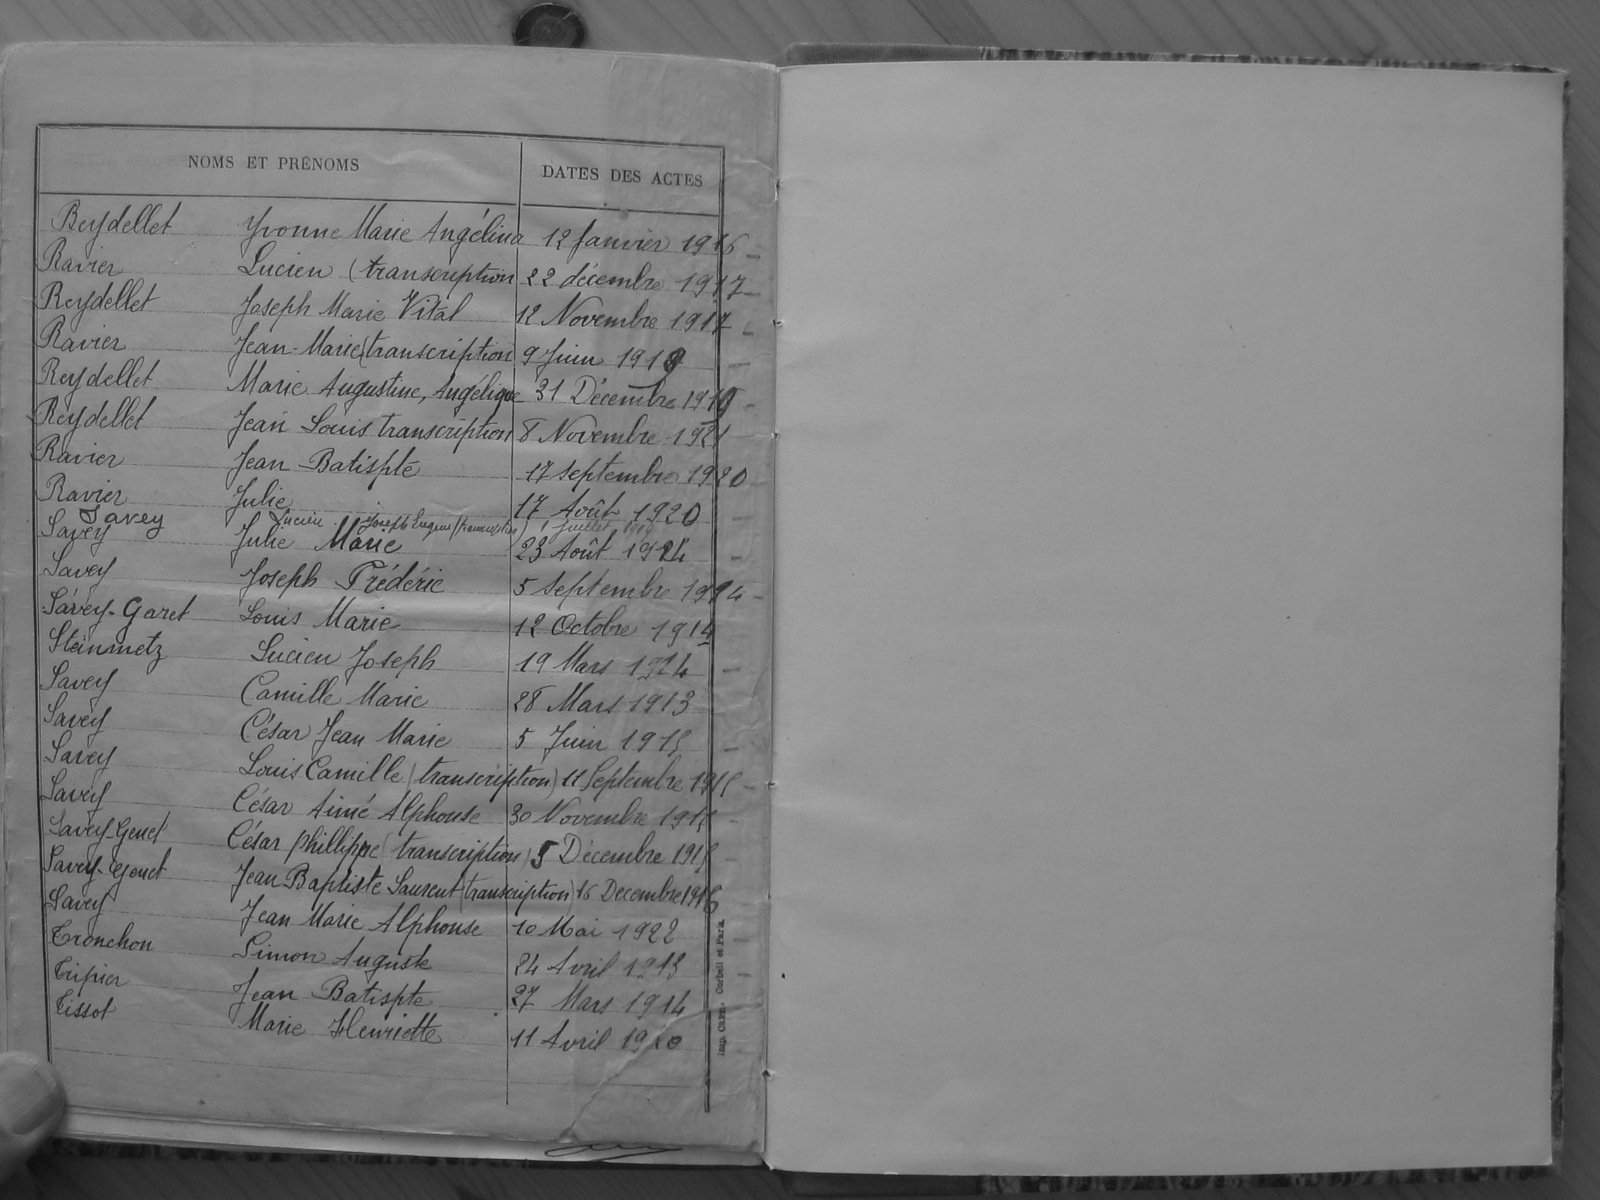 NOMS ET PRÉNOMS DATES DES ACTES
Reydellet Yvonne Marie Angélina 12 Janvier 1916
Ravier Lucien (transcription 22 décembre 1917
Reydellet Joseph Marie Vital 12 Novembre 1917
Ravier Jean-Marie (transcription 9 Juin 1918
Reydellet Marie Augustine, Angélique 31 Décembre 1919
Reydellet Jean Louis transcription 8 Novembre 1921
Ravier Jean Batispte 17 septembre 1920
Ravier Julie 17 Août 1920
Savey Lucien Joseph Eugène (transcription) Juillet
Savey Julie Marie 23 Août 1924
Savey Joseph Frédéric 5 septembre 1924
Savey-Garet Louis Marie 12 Octobre 1914
Steinmetz Lucien Joseph 19 Mars 1924
Savey Camille Marie 28 Mars 1913
Savey César Jean Marie 5 Juin 1915
Savey Louis Camille (transcription) 11 Septembre 1915
Savey César Aimé Alphonse 30 Novembre 1915
Savey-Genet César phillippe (transcription) 5 Décembre 1915
Savey-Genet Jean Baptiste Laurent (transcription) 16 Decembre 1916
Savey Jean Marie Alphonse 10 Mai 1922
Tronchon Simon Auguste 24 Avril 1913
Tripier Jean Batispte 27 Mars 1914
Tissot Marie Henriette 11 Avril 1920
Corbeil et Paris.